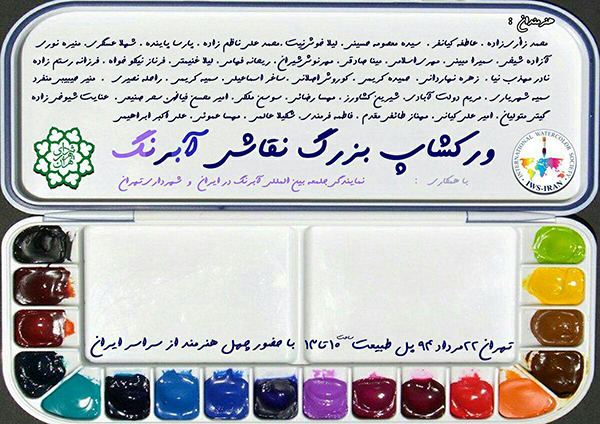 هنرمندان :
محمد زارع‌زاده . عاطفه کیانفر . سیده معصومه حسینی . لیلا خوش‌نیت . محمد علی ناظم زاده . پارسا پاینده . شهلا عسگری . منیره نوری
آزاده شیفی . سمیرا مبینی . مهری اسلامر . مینا صادقی . مهرنوش شیرازی . ریحانه فهامی . لیلا غنیمتی . فرناز نیکو خواه . فرزانه رستم زاده
نادر مهذب نیا . زهره نهاردانی . حمیده کریمی . کوروش اصلانی . ساغر اسماعیلی . سمیه کریمی . راحله نصیری . منیر حبیبیبر منفرد
سمیه شهریاری . مریم دولت آبادی . شیرین کشاورز . مهسا رضائی . سوسن ملکی . امیر محسن فیاضی سحر صنیعی . عنایت شیوخی زاده
گیتی متولیان . امیر علی کیانی . مهناز طائفی مقدم . فاطمه فرمندی . شکیلا عالمی . مهسا عموئی . علی اکبر ابراهیمی
ورکشاپ بزرگ نقاشی آبرنگ
با همکاری : نمایندگی جامعه بین المللی آبرنگ در ایران و شهرداری تهران
INTERNATIONAL WATERCOLOR SOCIETY
IWS-IRAN
تهران ۲۲ مرداد ۹۴ پل طبیعت ساعت ۱۰ تا ۱۳ با حضور چهل هنرمند از سراسر ایران